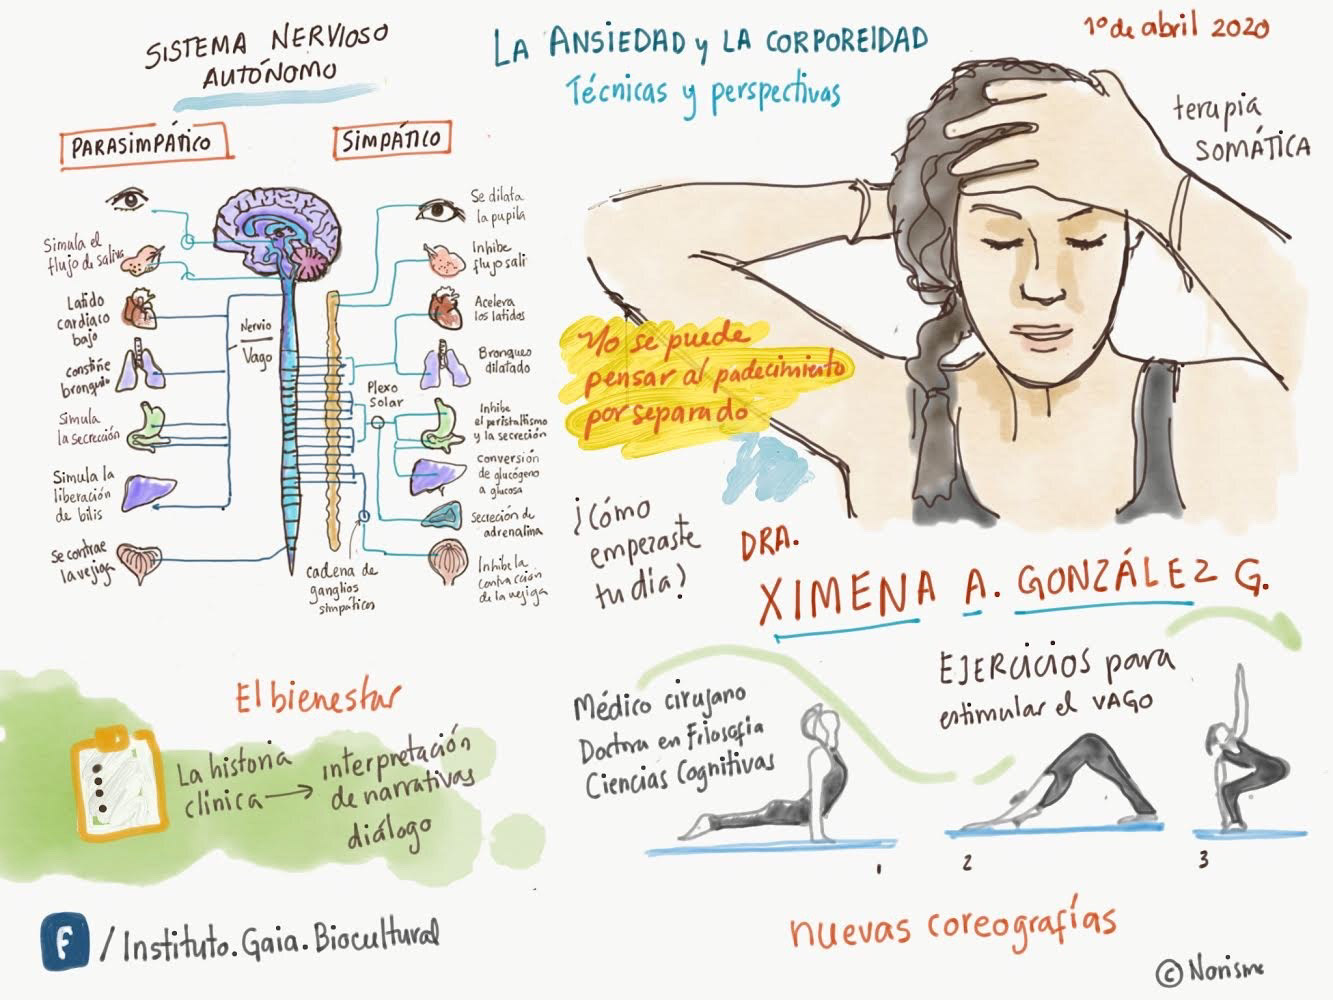 SISTEMA NERVIOSO
AUTÓNOMO
PARASIMPÁTICO
SIMPÁTICO
Simula el
flujo de saliva
Latido
cardiaco
bajo
constriñe
bronquio
Simula
la secreción
Simula la
liberación
de bilis
Se contrae
la vejiga
Nervio
Vago
Plexo
Solar
cadena de
ganglios
simpáticos
Se dilata
la pupila
Inhibe
flujo sali
Acelera
los latidos
Bronquio
dilatado
Inhibe
el peristaltismo
y la secreción
conversión
de glucógeno
a glucosa
Secreción de
adrenalina
Inhibe la
contracción
de la vejiga
LA ANSIEDAD y LA CORPOREIDAD
Técnicas y perspectivas
1º de abril 2020
terapia
SOMÁTICA
No se puede
pensar al padecimiento
por separado
¿Cómo
empezaste
tu día?
DRA.
XIMENA A. GONZÁLEZ G.
Médico cirujano
Doctora en Filosofía
Ciencias Cognitivas
EJERCICIOS para
estimular el VAGO
1
2
3
nuevas coreografías
El bienestar
La historia
clínica → interpretación
de narrativas
diálogo
f /Instituto.Gaia.Biocultural
© Norisme